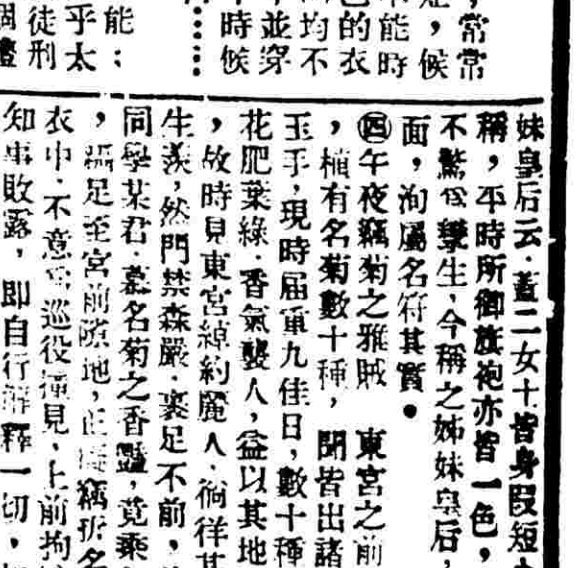 ，常常
候
能時
的衣
均不
並穿
時候
……
能；
乎太
徒刑
妹皇后云·蓋二女士皆身段短
稱，平時所御旗袍亦皆一色，
不驚爲雙生，今稱之姊妹皇后，
面，洵屬名符其實●
㊃午夜竊菊之雅賊　東宮之前
，植有名菊數十種，聞皆出諸
玉手，現時屆重九佳日，數十種
花肥葉綠·香氣襲人，益以其地
，故時見東宮綽約麗人·徜徉其
生羨，然門禁森嚴·裹足不前，
同學某君·慕名菊之香豔，竟乘
，躡足至宮前隙地，正
衣中·不意
巡役撞見·上前拘
知事敗露，即自行解釋一切，